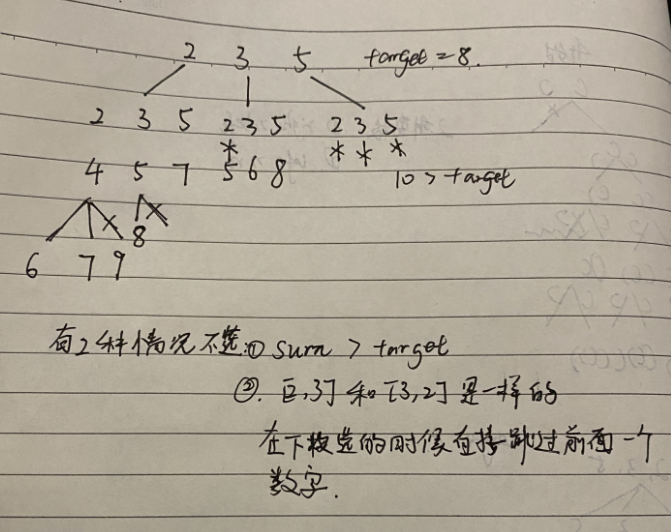 2 3 5 target = 8.
2 3 5 2 3 5 2 3 5
* * * *
4 5 7 5 6 8 10 > target
x x
8
6 7 9
有2种情况不选:① sum > target
②. [2,3] 和 [3,2] 是一样的
在下枚选的时候直接跳过前面一个
数字.